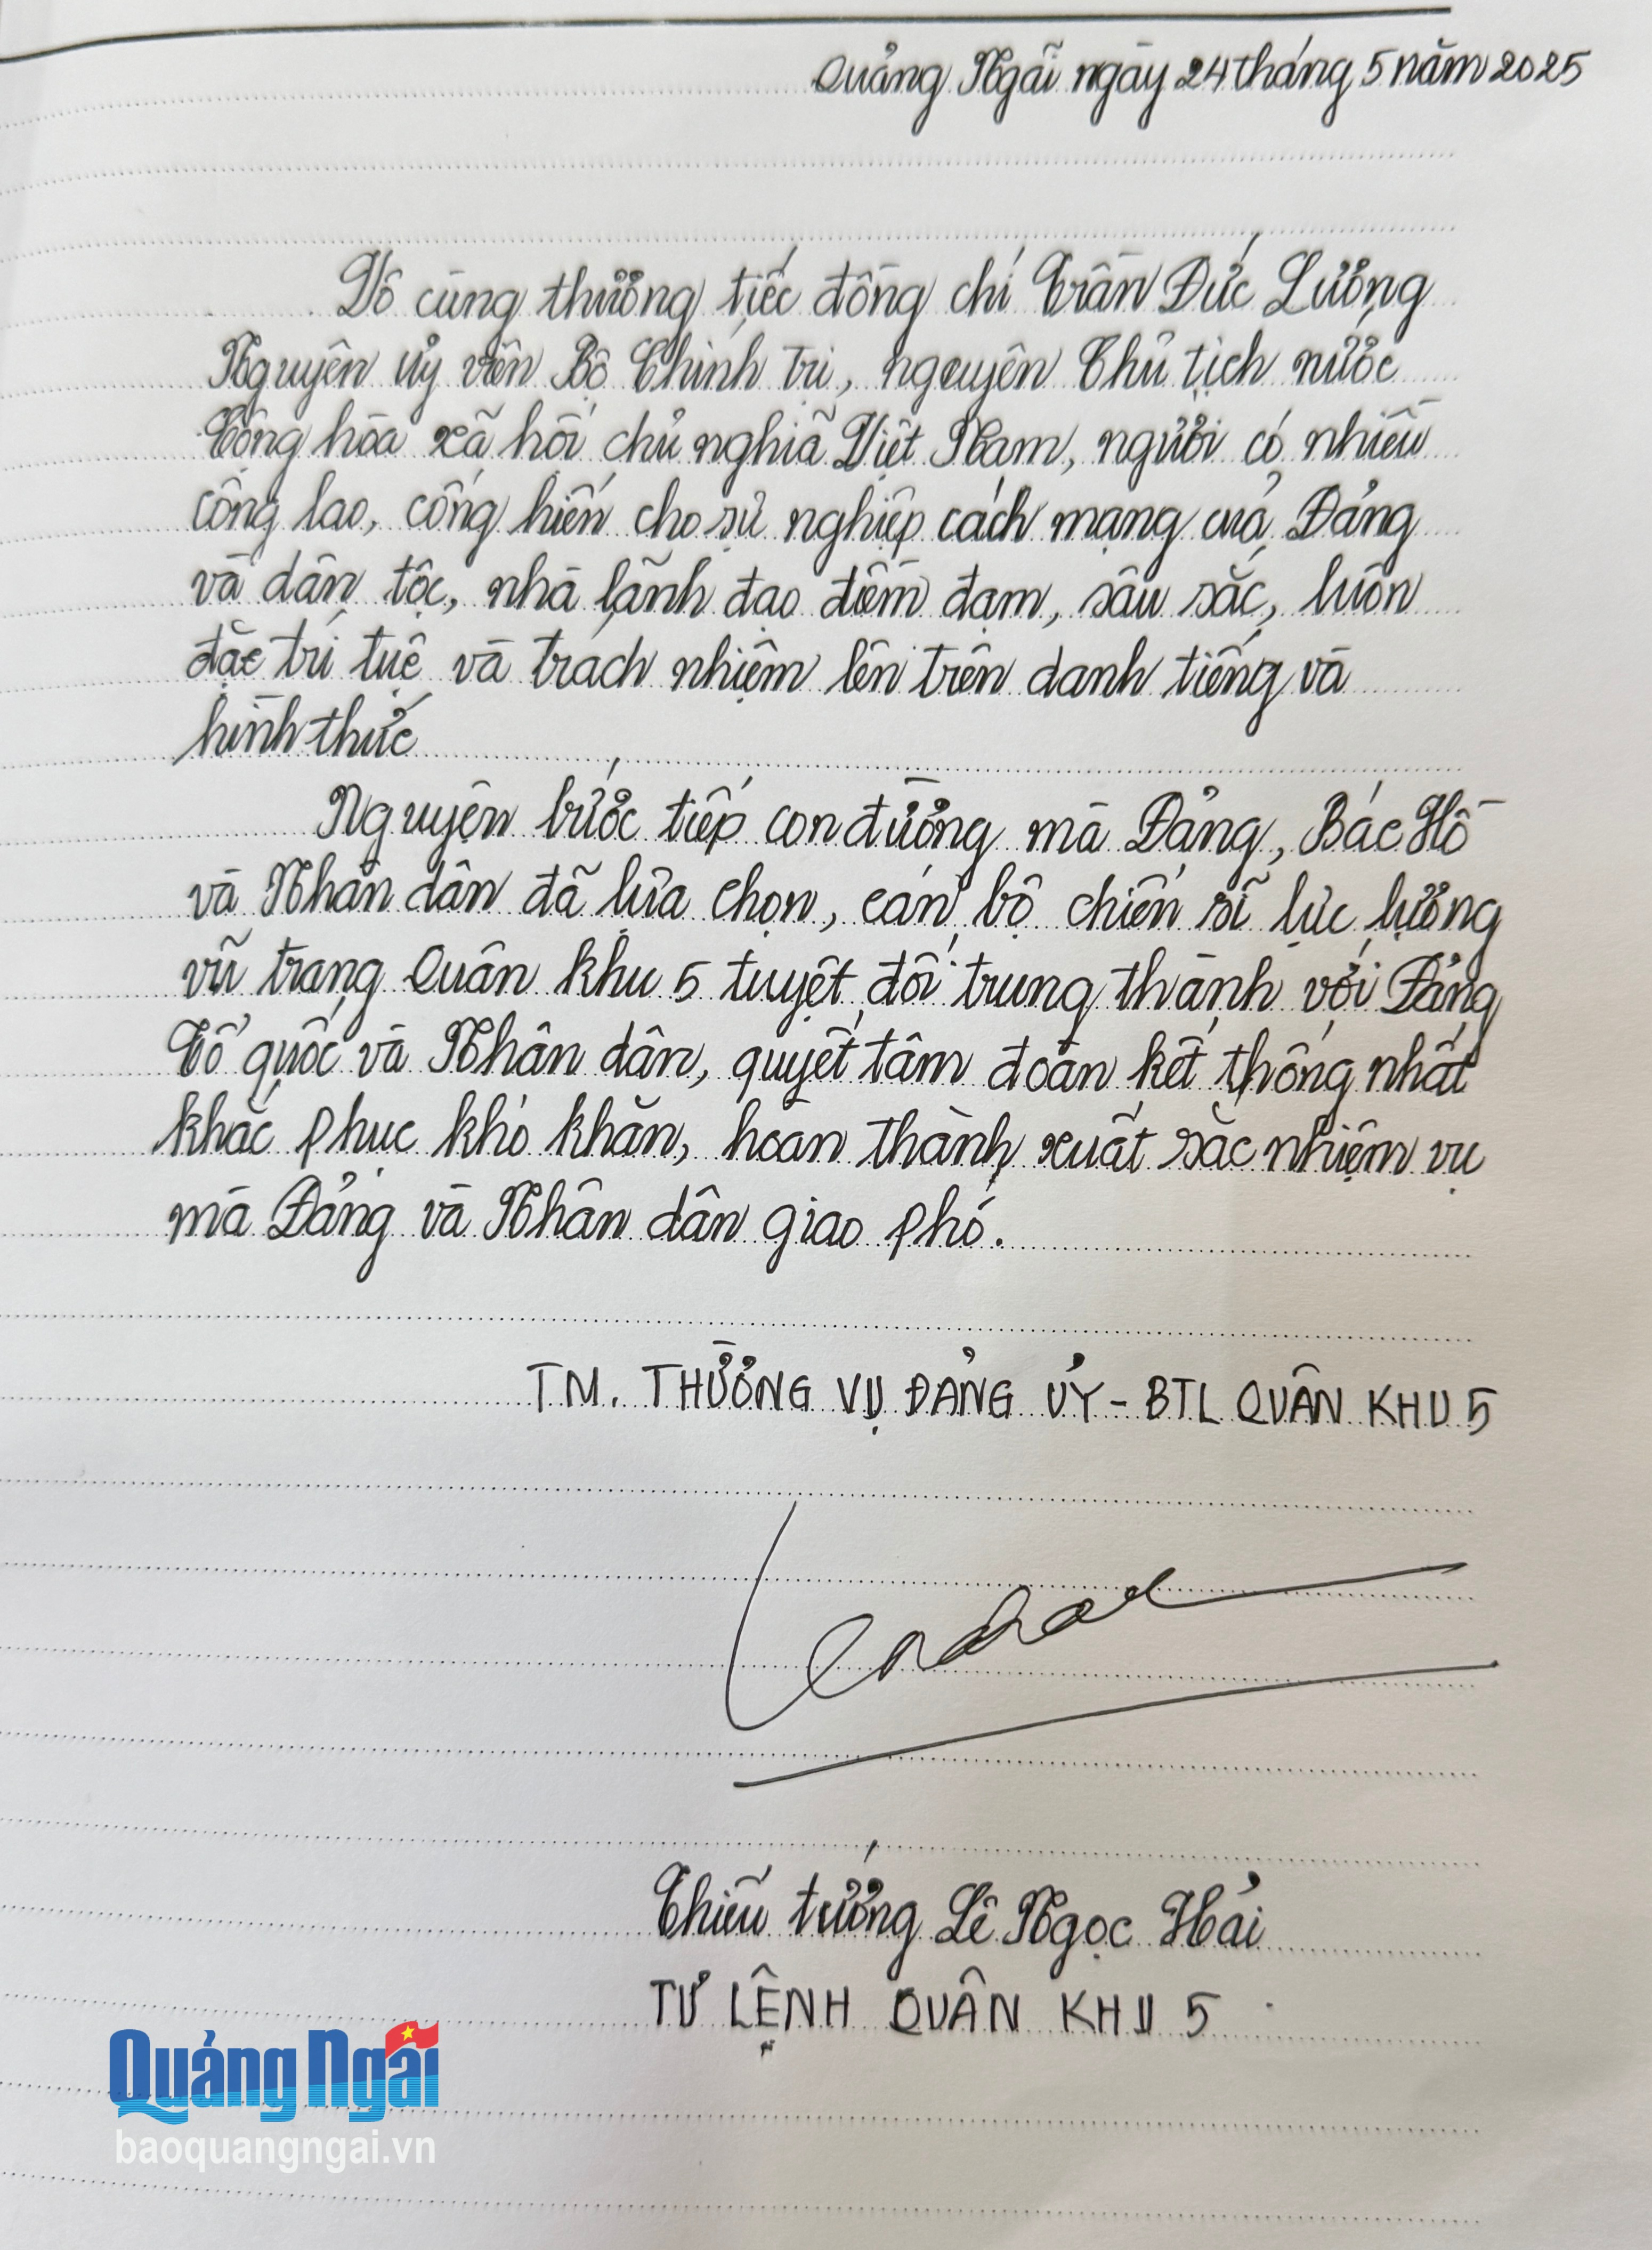 Quảng Ngãi ngày 24 tháng 5 năm 2025
Vô cùng thương tiếc đồng chí Trần Đức Lương
Nguyên Uỷ viên Bộ Chính trị, nguyên Chủ tịch nước
Cộng hòa xã hội chủ nghĩa Việt Nam, người có nhiều
công lao, cống hiến cho sự nghiệp cách mạng của Đảng
và dân tộc, nhà lãnh đạo điềm đạm, sâu sắc, luôn
đặt trí tuệ và trách nhiệm lên trên danh tiếng và
hình thức
Nguyện bước tiếp con đường mà Đảng, Bác Hồ
và Nhân dân đã lựa chọn, cán bộ chiến sĩ lực lượng
vũ trang Quân khu 5 tuyệt đối trung thành với Đảng
Tổ quốc và Nhân dân, quyết tâm đoàn kết thống nhất
khắc phục khó khăn, hoàn thành xuất sắc nhiệm vụ
mà Đảng và Nhân dân giao phó.
TM. THƯỜNG VỤ ĐẢNG ỦY - BTL QUÂN KHU 5
Thiếu tướng Lê Ngọc Hải
TƯ LỆNH QUÂN KHU 5
Quảng Ngãi
baoquangngai.vn